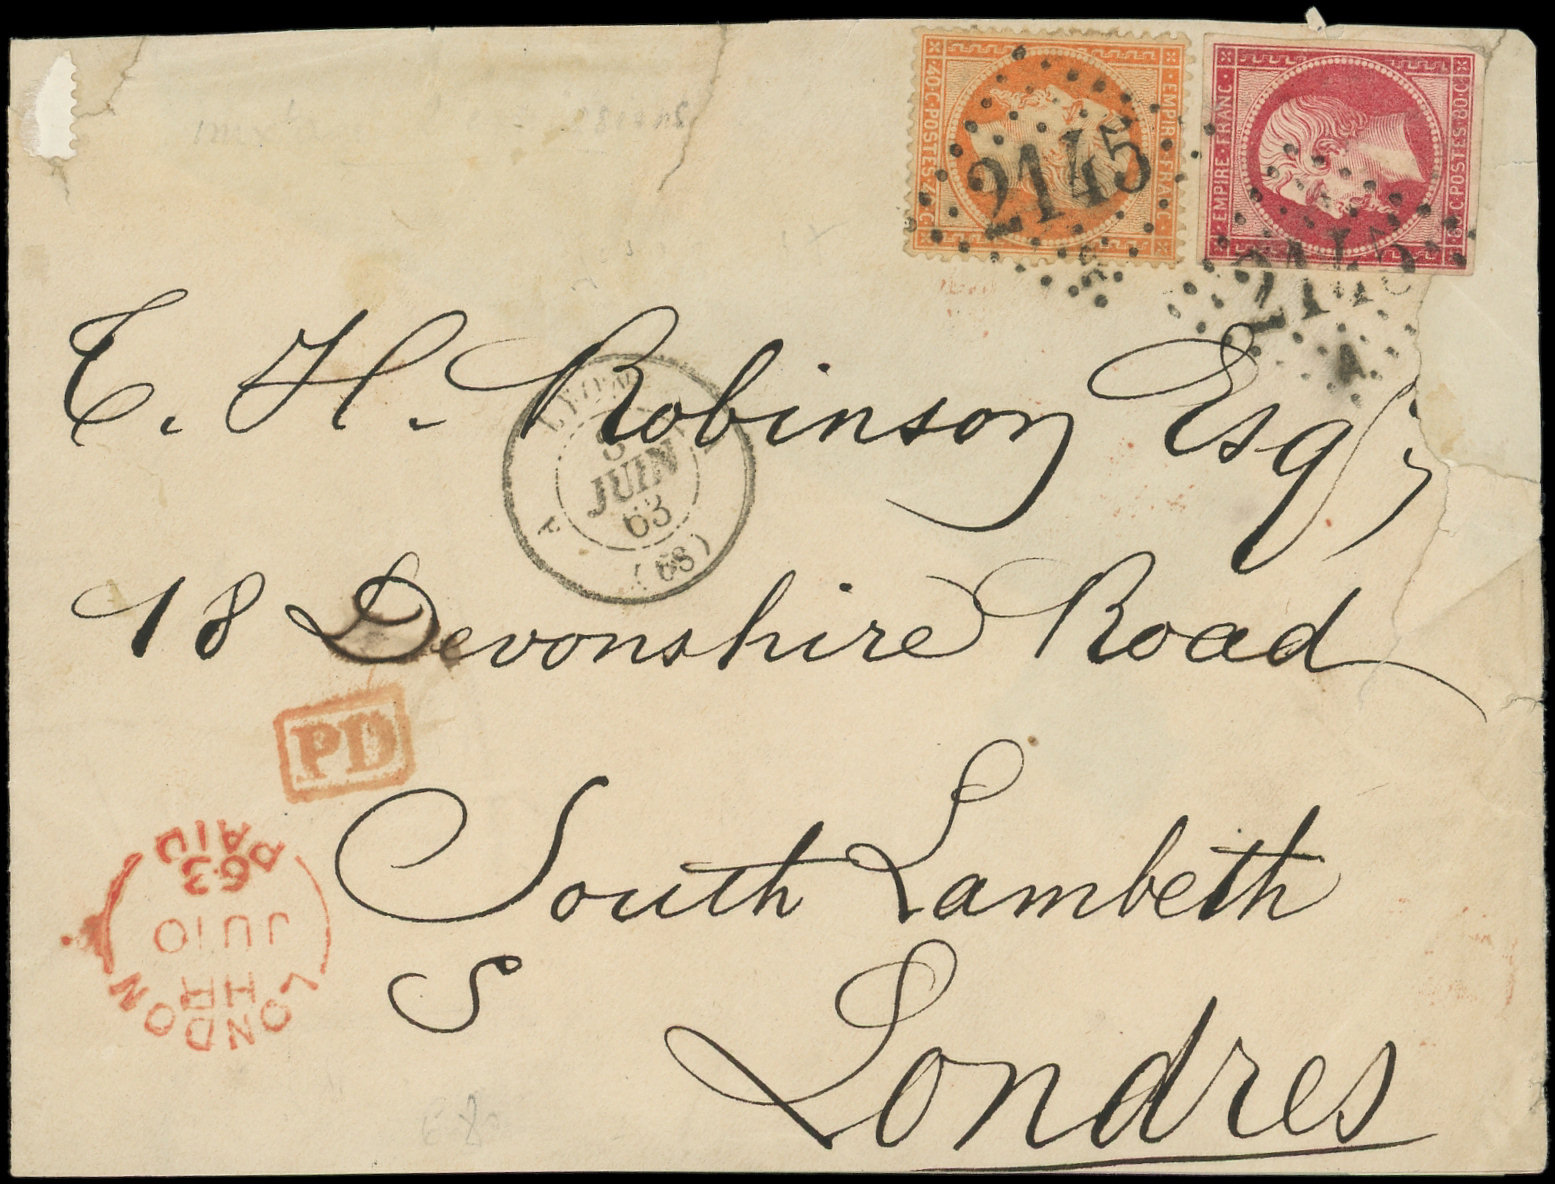 EMPIRE · FRANC ·
40 · C · POSTES · 40 · C
2145
EMPIRE · FRANC ·
80 · C · POSTES · 80 · C
2145
A
T. H. Robinson Esq
JUIN
63
(68)
18 Devonshire Road
PD
South Lambeth
S
Londres
LONDON
HR
JU 10
63
PAID